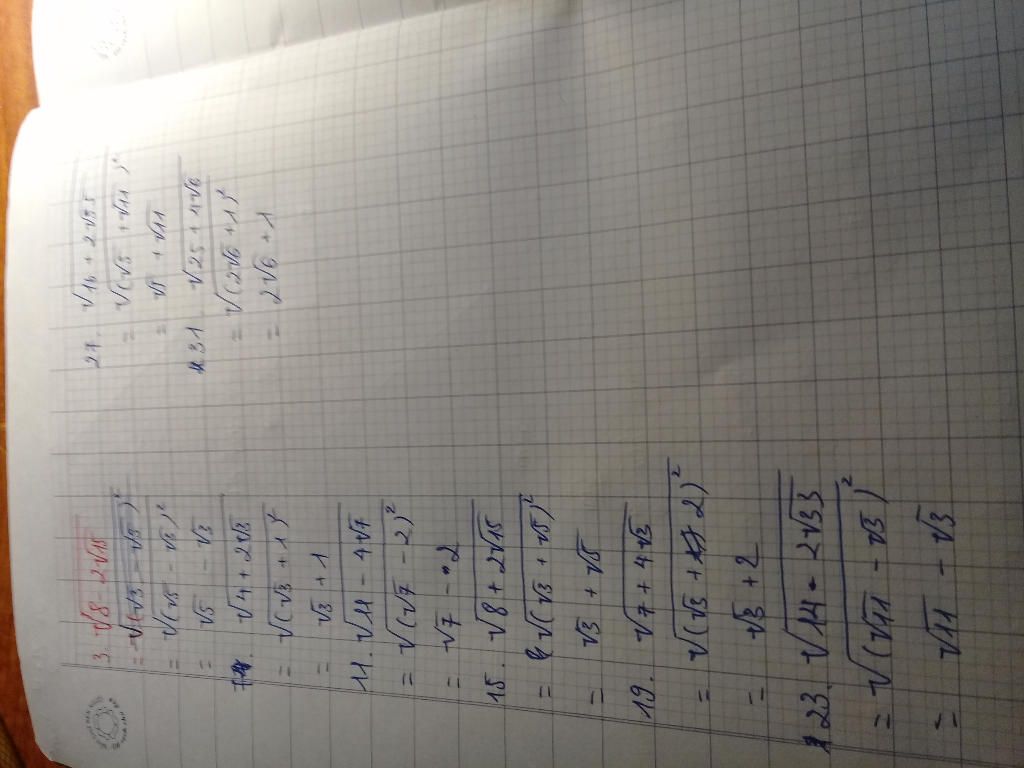 3. √8 - 2√15
= √(√3 - √5)²
= √(√5 - √3)²
= √5 - √3
7. √4 + 2√3
= √(√3 + 1)²
= √3 + 1
11. √11 - 4√7
= √(√7 - 2)²
= √7 - 2
15. √8 + 2√15
= √(√3 + √5)²
= √3 + √5
19. √7 + 4√3
= √(√3 + 2)²
= √3 + 2
23. √14 - 2√33
= √(√11 - √3)²
= √11 - √3
27. √16 + 2√55
= √(√5 + √11)²
= √5 + √11
31. √25 + 4√6
= √(2√6 + 1)²
= 2√6 + 1